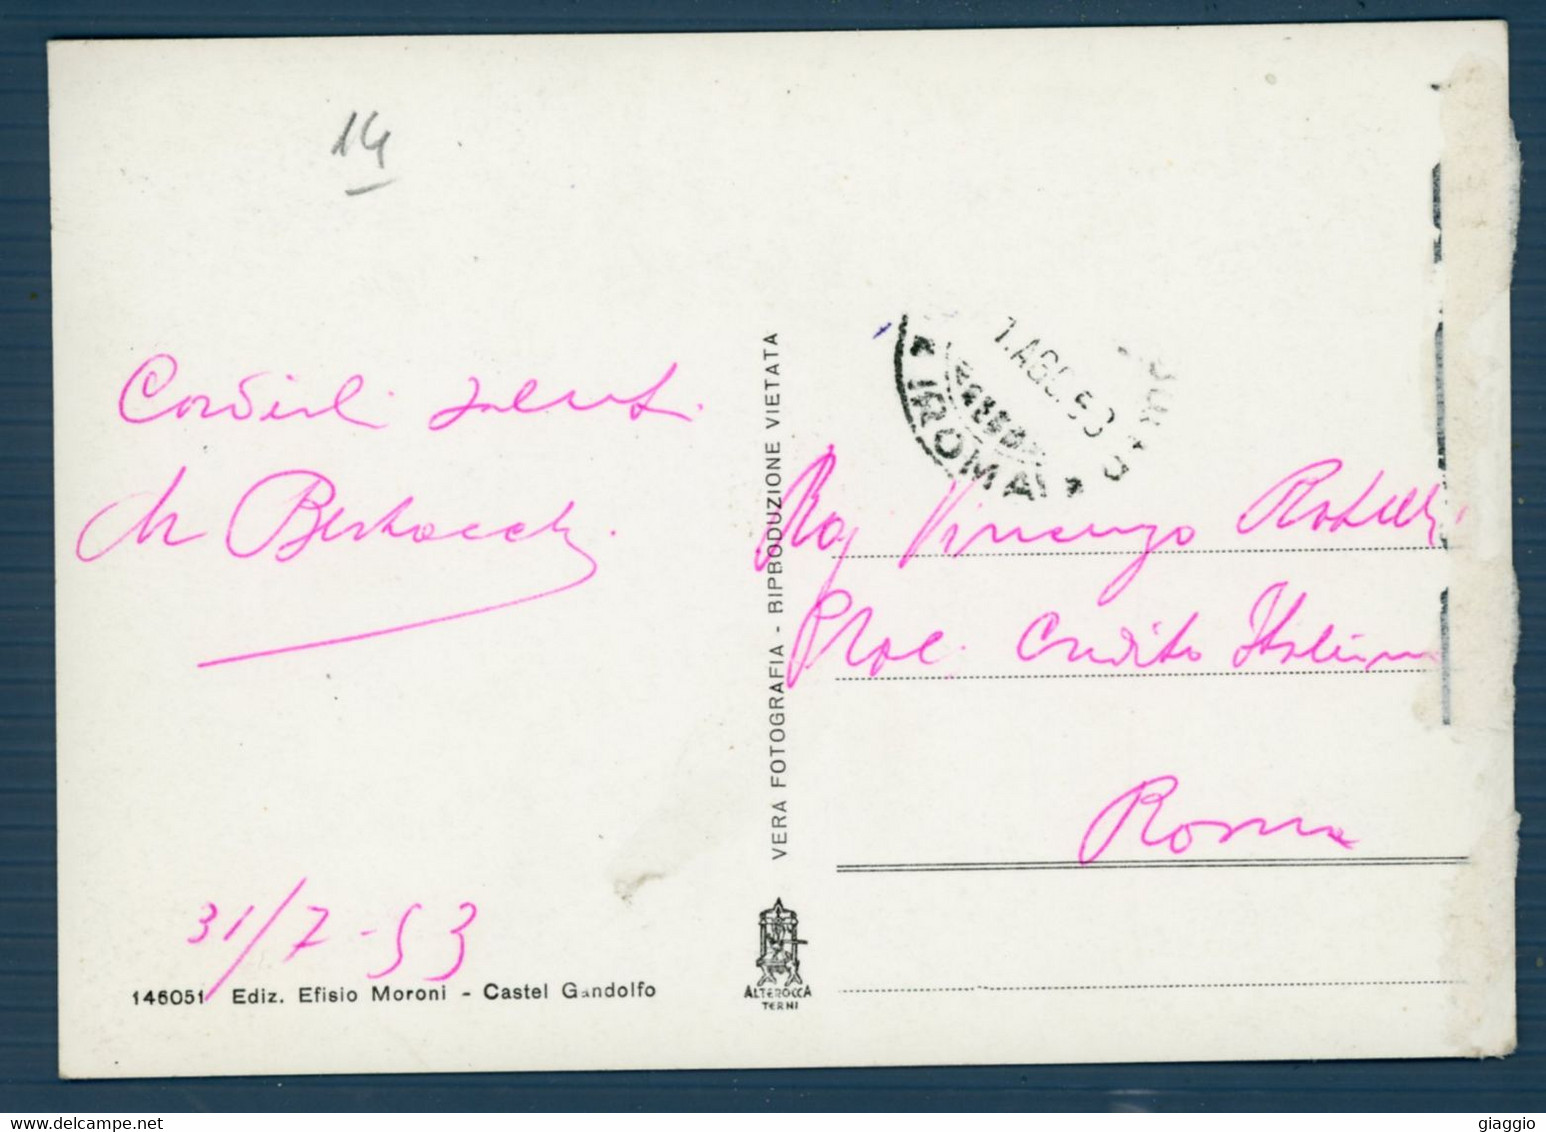 14
Cordiali saluti
Bertocchi
31/7-53
146051 Ediz. Efisio Moroni - Castel Gandolfo
VERA FOTOGRAFIA - RIPRODUZIONE VIETATA
ALTEROCCA
TERNI
1.AGO.53
ROMA
Rag Vincenzo
Credito Italiano
Roma
giaggio